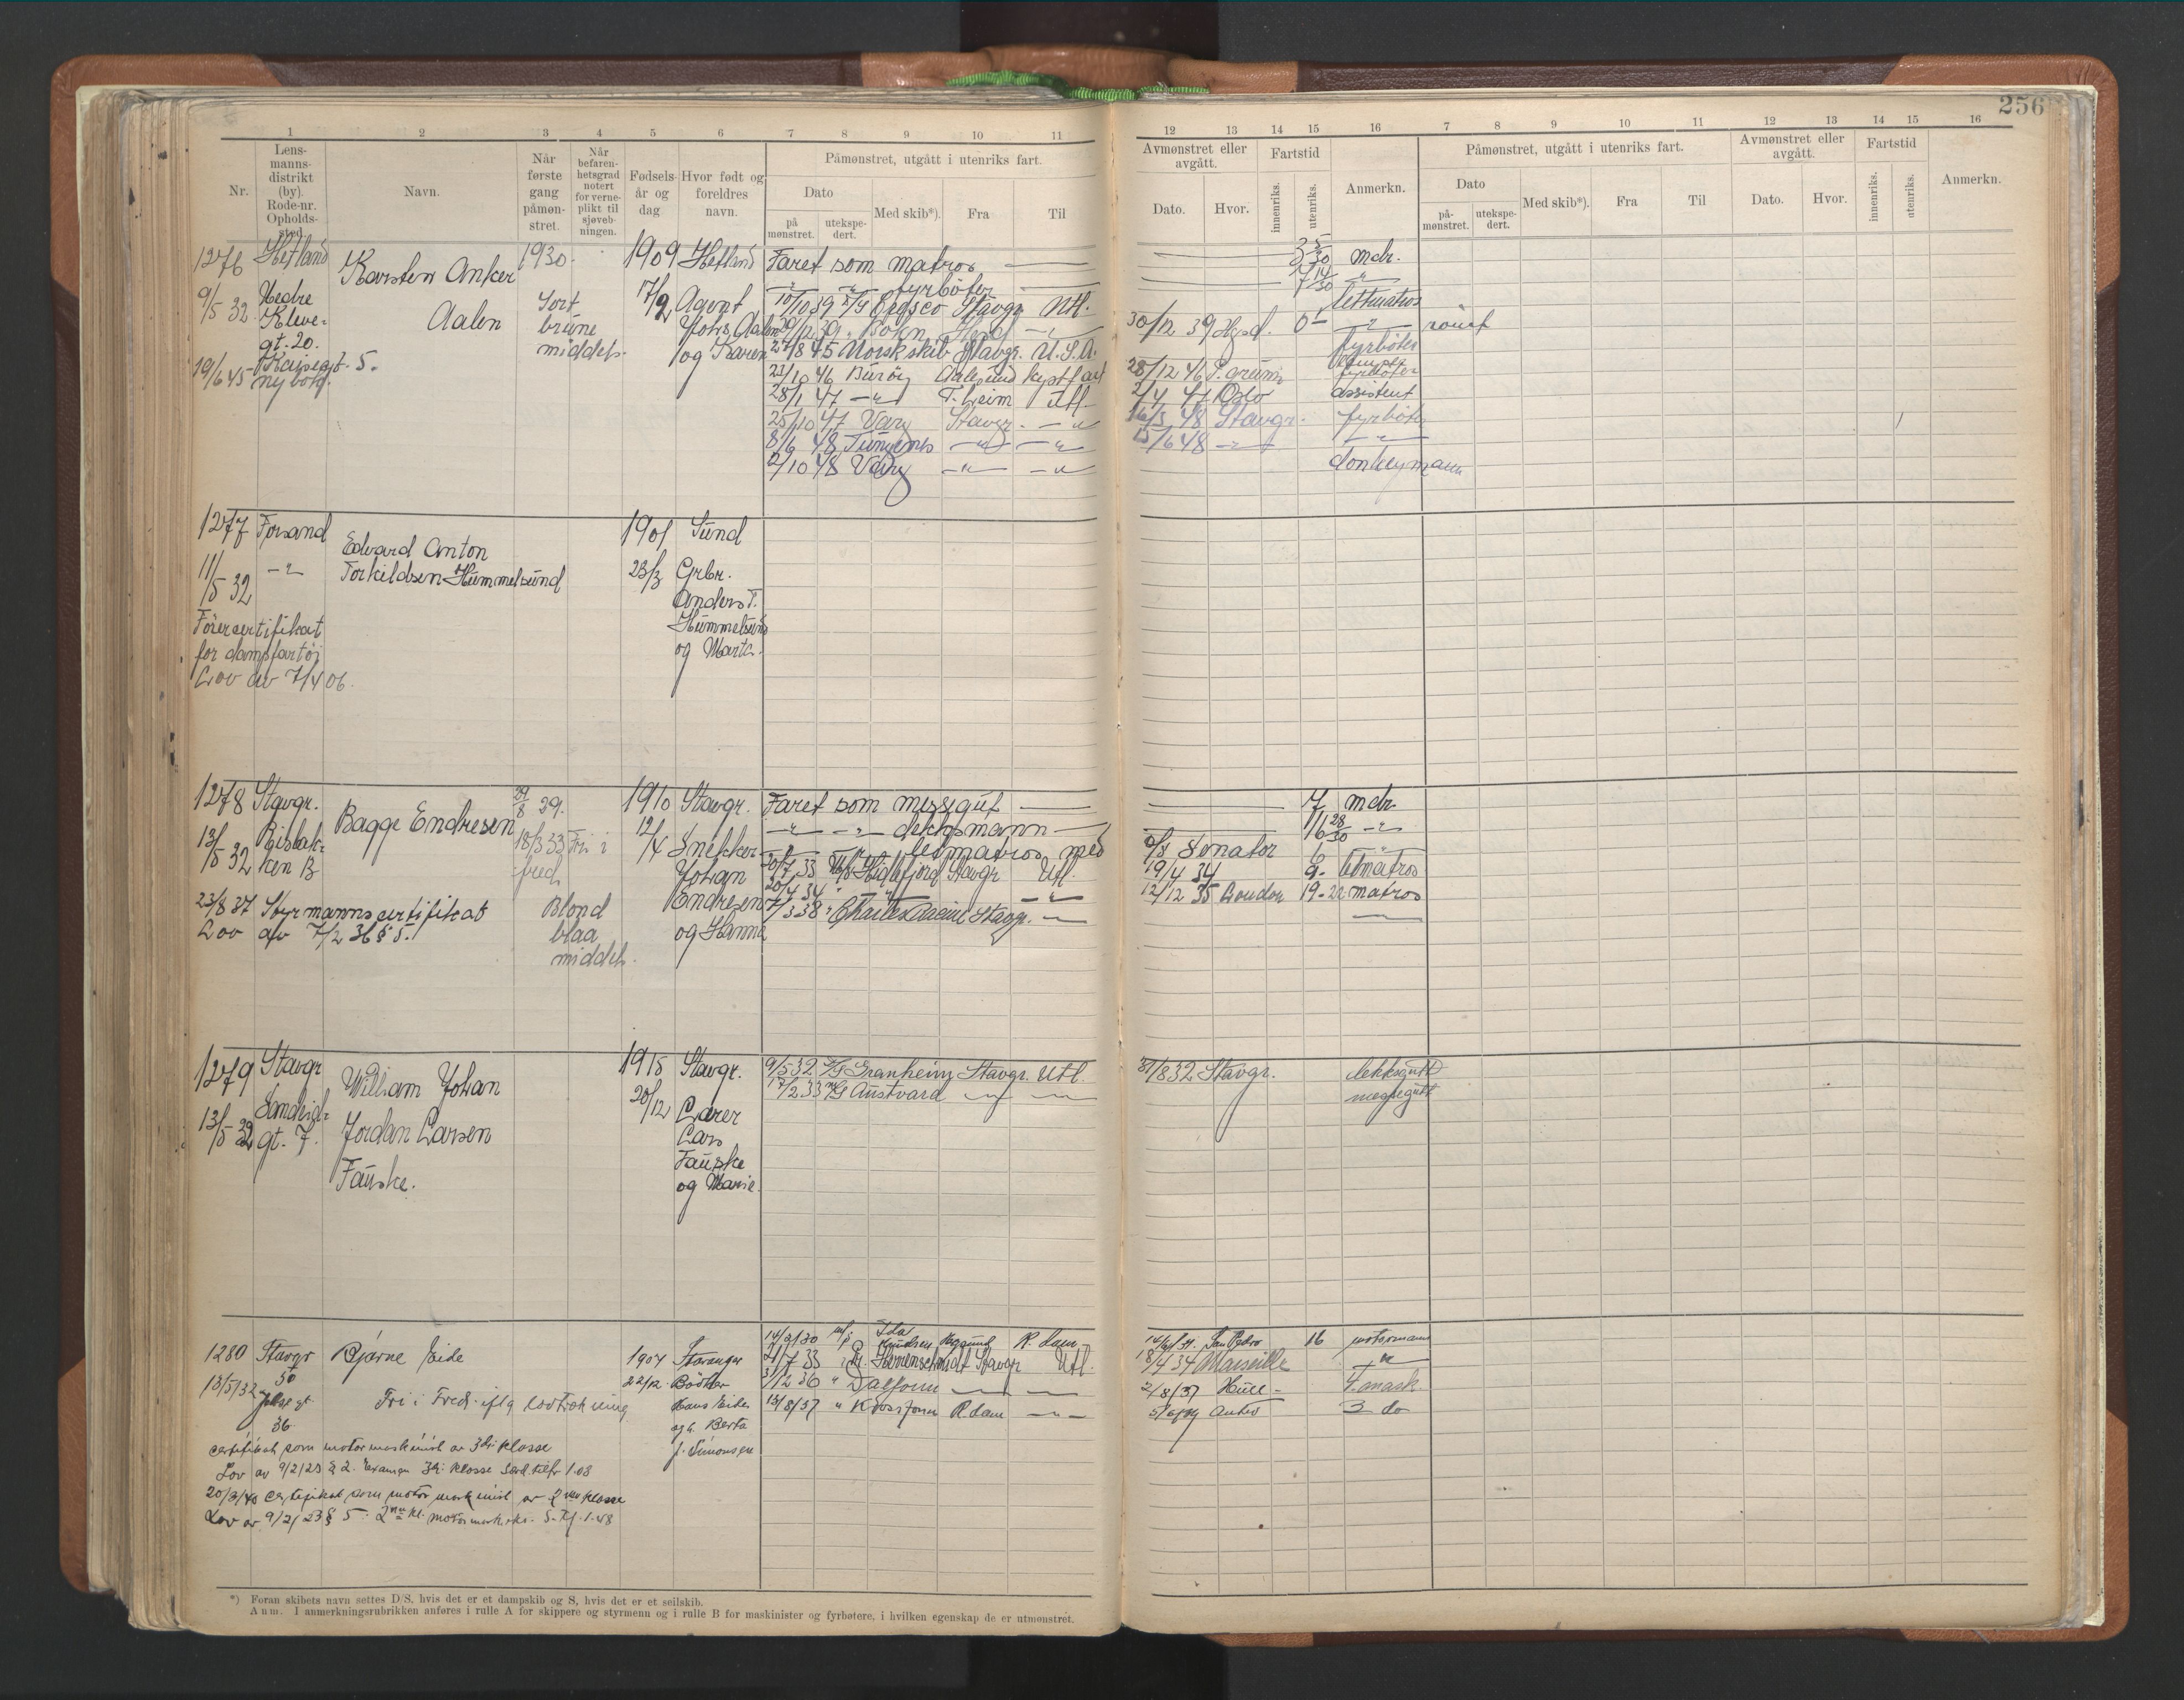 256
1 2 3 4 5 6 7 8 9 10 11
12 13 14 15 16 7 8 9 10 11 12 13 14 15 16
Nr.
Lens-
manns-
distrikt
(by).
Rode-nr.
Opholds-
sted.
Navn.
Når
første
gang
påmøn-
stret.
Når
befaren-
hetsgrad
notert
for verne-
plikt til
sjøveb-
ningen.
Fødsels-
år og
dag
Hvor født og
foreldres
navn.
Påmønstret, utgått i utenriks fart.
Dato
på
mønstret.
utekspe-
dert.
Med skib*).
Fra
Til
Avmønstret eller
avgått.
Dato.
Hvor.
Fartstid
innenriks.
utenriks.
Anmerkn.
Påmønstret, utgått i utenriks fart.
Dato
på-
mønstret.
utekspe-
dert.
Med skib*).
Fra
Til
Avmønstret eller
avgått.
Dato.
Hvor.
Fartstid
innenriks.
utenriks.
Anmerkn.
1276 Hetland
9/5 32 Nedre
Kleve-
gt. 20.
19/6 45 Kaisegt. 5.
Karsten Anker
Aalen
1930.
Sort
brune
middels.
1909
17/9
Hetland
Agent
Johs. Aalen
og Karen
Faret som matros
fyrbøter
10/10 39 Stavgr Utl.
Hgsd
27/8 45 Norsk skib Stavgr. U.S.A.
23/10 46 Aalesund kystfart
28/1 47 T.heim Utl.
25/10 47 Varg Stavgr.
8/6 48 Tungenes
2/10 48 Varg
3 5/30 mdr.
7 14/30
lettmatros
30/12 39 Hgsd.
fyrbøter
28/12 46
2/4 47 Oslo assistent
16/3 48 Stavgr. fyrbøter
15/6 48
donkeymann
1277 Forsand
11/5 32
Førercertifikat
for dampfartøi
Lov av 7/4 06.
Edvard Anton
Torkildsen Hummelsund
1901
23/3
Sund
Grbr.
Anders T.
Hummelsund
og Marta.
1278 Stavgr.
13/5 32 Risbak-
ken 13
23/8 37 Styrmannscertifikat
Lov av 7/2 36 § 5.
Bagge Endresen
29/8 29.
18/3 33 Fri i
fred
Blond
blaa
middels.
1910
12/4
Stavgr.
Snekker
Johan
Endresen
og Hanna
Faret som messegut
dekksmann
letmatros med
20/7 33 Hidlefjord Stavgr Utl.
20/4 34
7/3 38 Charles Racine Stavgr.
7 mdr.
16 28/30
Senator
19/4 34 9- letmatros
12/12 35 London 19-22 matros
1279 Stavgr
13/5 32 gt. 7.
William Johan
Jordan Larsen
Fauske.
1915
20/12
Stavgr.
Lærer
Lars
Fauske
og Marie.
9/5 32 D/S Granheim Stavgr. Utl.
17/2 33 Austvard
31/8 32 Stavgr. dekksgutt
messegutt
1280 Stavgr
13/5/32
36
Bjarne Eide
Fri i Fred. iflg lovtrekning
1907
22/12
Stavanger
Bødker
Hans Eide
og h. Berta
f. Simonsen
14/2/30 M/S Ida
Knudsen Hgsund R.dam
21/7 33 Stavgr Utl.
3/12 36 Dalfonn
13/8/37 Kvosfonn R.dam
San Pedro 16 motormann
18/4 34 Marseille
2/8/37 Hull 4.mask.
Antw 3 do
certifikat som motormaskinist av 3dje klasse
Lov av 9/2/23 § 2. Examen 3dje klasse
20/3/40 certifikat som motormaskinist av 2nen klasse
Lov av 9/2/23 § 5.
*) Foran skibets navn settes D/S, hvis det er et dampskib og S, hvis det er et seilskib.
Anm. I anmerkningsrubrikken anføres i rulle A for skippere og styrmenn og i rulle B for maskinister og fyrbøtere, i hvilken egenskap de er utmønstret.